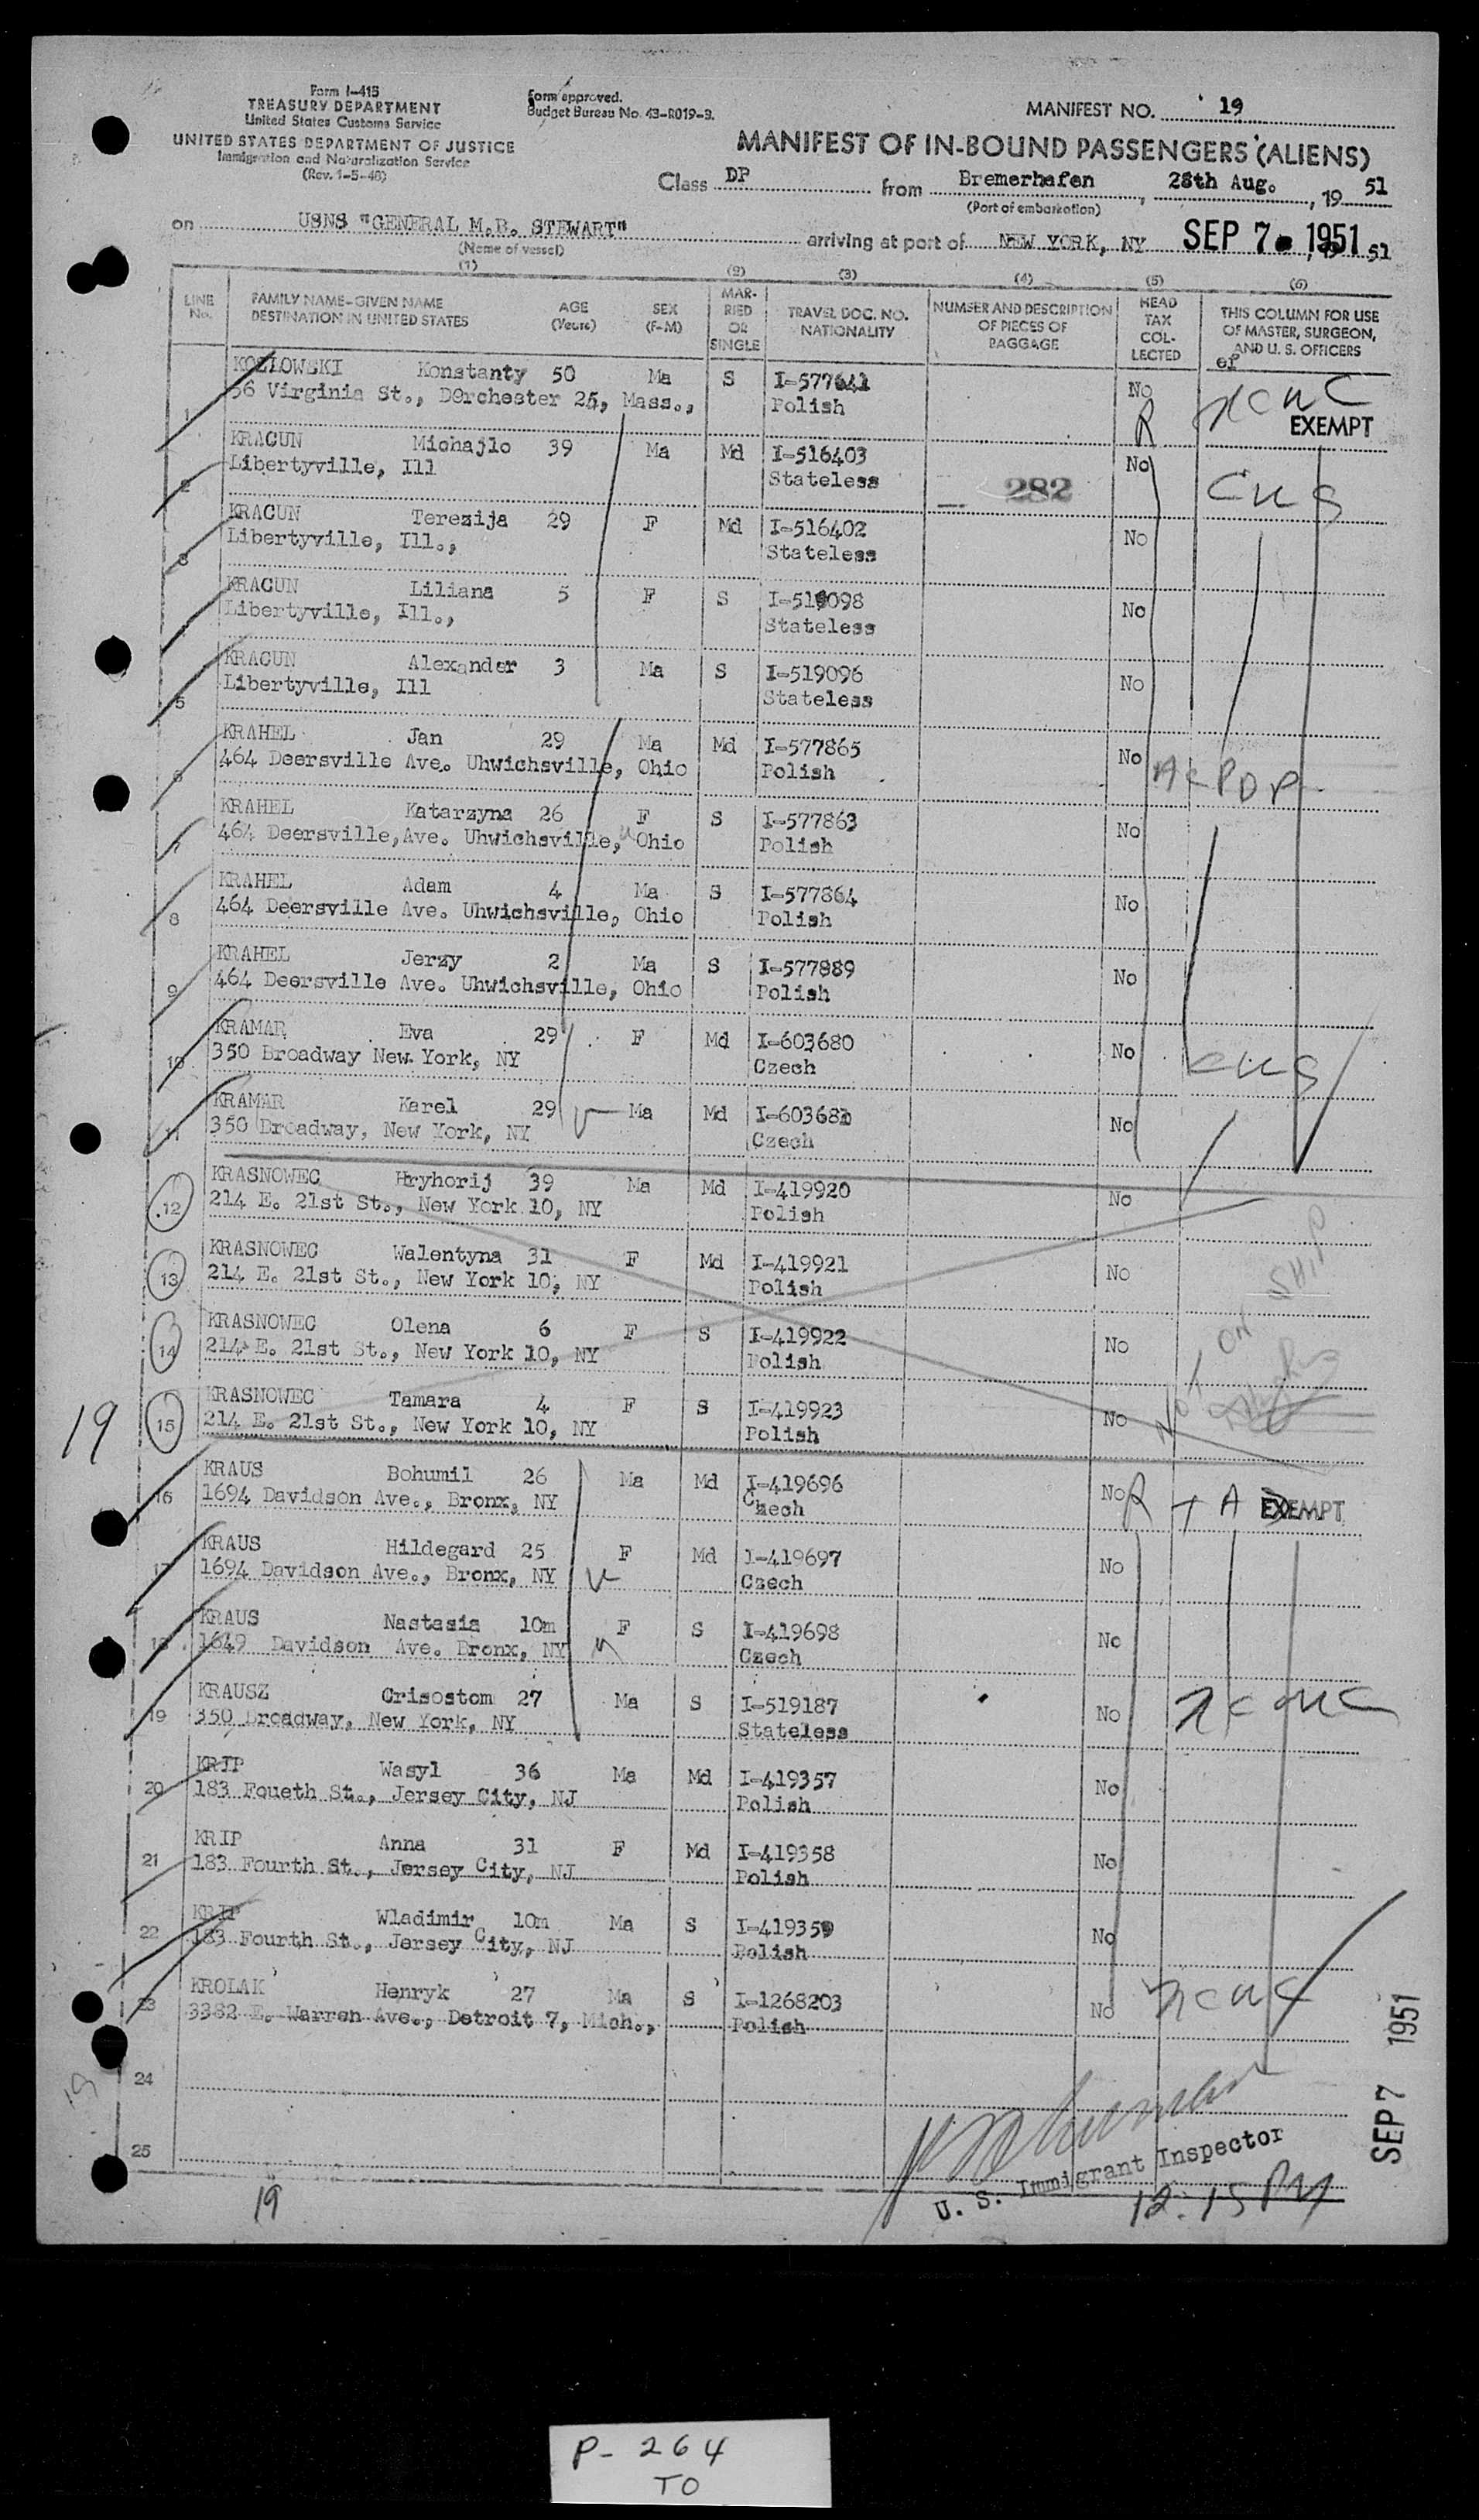 Form I-415
TREASURY DEPARTMENT
United States Customs Service
UNITED STATES DEPARTMENT OF JUSTICE
Immigration and Naturalization Service
(Rev. 1-5-48)
Form approved.
Budget Bureau No. 43-R019-3.
MANIFEST NO. 19
MANIFEST OF IN-BOUND PASSENGERS (ALIENS)
Class DP from Bremerhafen, 28th Aug., 19 51
(Port of embarkation)
on USNS "GENERAL M.B. STEWART" arriving at port of NEW YORK, NY SEP 7 1951, 19 51
(Name of vessel)
(1) (2) (3) (4) (5) (6)
LINE No. FAMILY NAME-GIVEN NAME DESTINATION IN UNITED STATES AGE (Years) SEX (F-M) MARRIED OR SINGLE TRAVEL DOC. NO. NATIONALITY NUMBER AND DESCRIPTION OF PIECES OF BAGGAGE HEAD TAX COLLECTED THIS COLUMN FOR USE OF MASTER, SURGEON, AND U. S. OFFICERS
1 KOZLOWSKI Konstanty 50 Ma S I-577641 No
56 Virginia St., DOrchester 25, Mass., Polish R NCWC EXEMPT
2 KRACUN Michajlo 39 Ma Md I-516403 No
Libertyville, Ill Stateless 282 CWS
3 KRACUN Terezija 29 F Md I-516402 No
Libertyville, Ill., Stateless
KRACUN Liliana 5 F S I-519098 No
Libertyville, Ill., Stateless
5 KRACUN Alexander 3 Ma S I-519096 No
Libertyville, Ill Stateless
6 KRAHEL Jan 29 Ma Md I-577865 No
464 Deersville Ave. Uhwichsville, Ohio Polish ACPDP
7 KRAHEL Katarzyna 26 F S I-577863 No
464 Deersville, Ave. Uhwichsville, Ohio Polish
8 KRAHEL Adam 4 Ma S I-577864 No
464 Deersville Ave. Uhwichsville, Ohio Polish
9 KRAHEL Jerzy 2 Ma S I-577889 No
464 Deersville Ave. Uhwichsville, Ohio Polish
10 KRAMAR Eva 29 F Md I-603680 No
350 Broadway New York, NY Czech CWS
11 KRAMAR Karel 29 Ma Md No
350 Broadway, New York, NY Czech
12 KRASNOWEC Hryhorij 39 Ma Md I-419920 No
214 E. 21st St., New York 10, NY Polish
13 KRASNOWEC Walentyna 31 F Md I-419921 No
214 E. 21st St., New York 10, NY Polish
14 KRASNOWEC Olena 6 F S I-419922 No
214 E. 21st St., New York 10, NY Polish
NOT ON SHIP
15 KRASNOWEC Tamara 4 F S I-419923 No
214 E. 21st St., New York 10, NY Polish
19
16 KRAUS Bohumil 26 Ma Md I-419696 No
1694 Davidson Ave., Bronx, NY Czech R TA EXEMPT
17 KRAUS Hildegard 25 F Md I-419697 No
1694 Davidson Ave., Bronx, NY Czech
18 KRAUS Nastasia 10m F S I-419698 No
1649 Davidson Ave. Bronx, NY Czech
19 KRAUSZ Crisostom 27 Ma S I-519187 No
350 Broadway, New York, NY Stateless NCWC
20 KRIP Wasyl 36 Ma Md I-419357 No
183 Foueth St., Jersey City, NJ Polish
21 KRIP Anna 31 F Md I-419358 No
183 Fourth St., Jersey City, NJ Polish
22 KRIP Wladimir 10m Ma S I-419359 No
183 Fourth St., Jersey City, NJ Polish
23 KROLAK Henryk 27 Ma S I-1268203 No
3382 E. Warren Ave., Detroit 7, Mich., Polish NCWC
24
25
19
U. S. Immigrant Inspector
12:15 PM
SEP 7 1951
19
P-264
TO